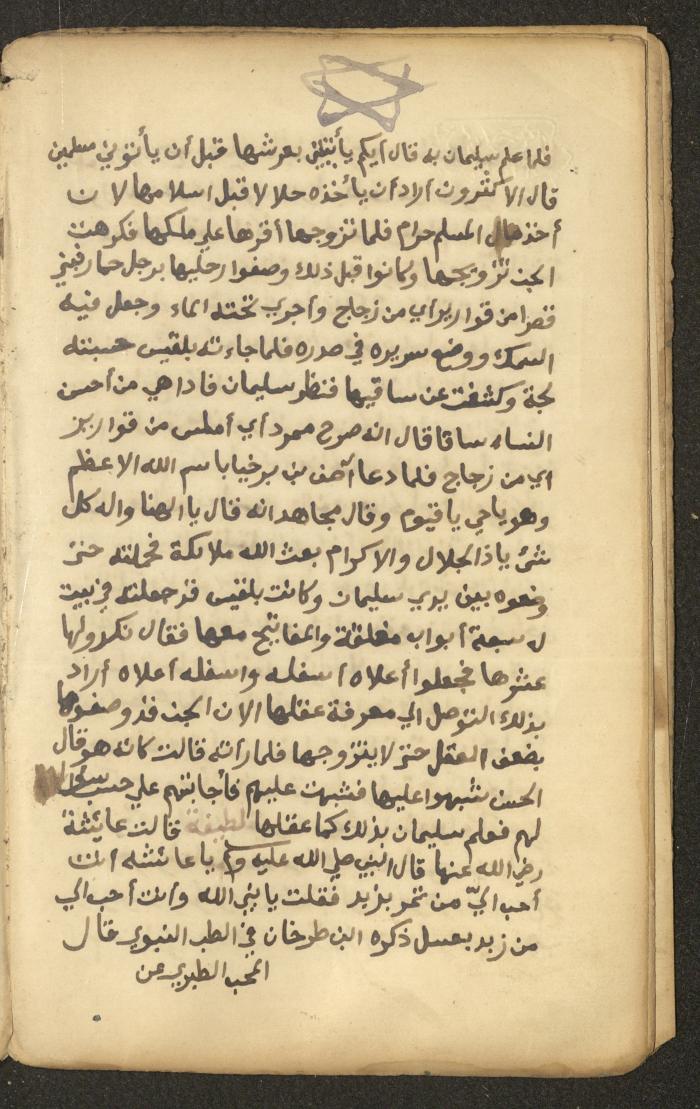 فلما علم سليمان به قال أيكم يأتيني بعرشها قبل أن يأتوني مسلمين
قال الاكثرون أراد أن يأخذه حلالا قبل اسلامها لان
أخذ مال المسلم حرام فلما تزوجها أقرها علي ملكها فكرهت
الجن تزويجها وكانوا قبل ذلك وصفوا رجليها برجل حمار فبني
قصرا من قوارير أي من زجاج وأجري تحته الماء وجعل فيه
السمك ووضع سريره في صدره فلما جاءته بلقيس حسبته
لجة وكشفت عن ساقيها فنظر سليمان فاذا هي من أحسن
النساء ساقا قال انه صرح ممرد أي أملس من قوارير
اي من زجاج فلما دعا آصف بن برخيا باسم الله الاعظم
وهو ياحي ياقيوم وقال مجاهد انه قال يا الهنا واله كل
شئ ياذا الجلال والاكرام بعث الله ملائكة فحملته حتى
وضعوه بين يدي سليمان وكانت بلقيس قد جعلته في بيت
له سبعة أبواب مغلقة والمفاتيح معها فقال نكروا لها
عرشها فجعلوا أعلاه أسفله واسفله أعلاه أراد
بذلك التوصل الي معرفة عقلها الان الجن قد وصفوها
بضعف العقل حتى لا يتزوجها فلما رأته قالت كانه هو قال
الحسن شبهوا عليها فشبهت عليهم فأجابتهم علي حسب سؤالها
لهم فعلم سليمان بذلك كما عقلها لطيفة قالت عائشة
رضي الله عنها قال النبي صلي الله عليه وسلم يا عائشة انت
أحب اليّ من تمر بزبد فقلت يا نبي الله وأنت أحب الي
من زبد بعسل ذكره ابن طرخان في الطب النبوي قال
المحب الطبري عن